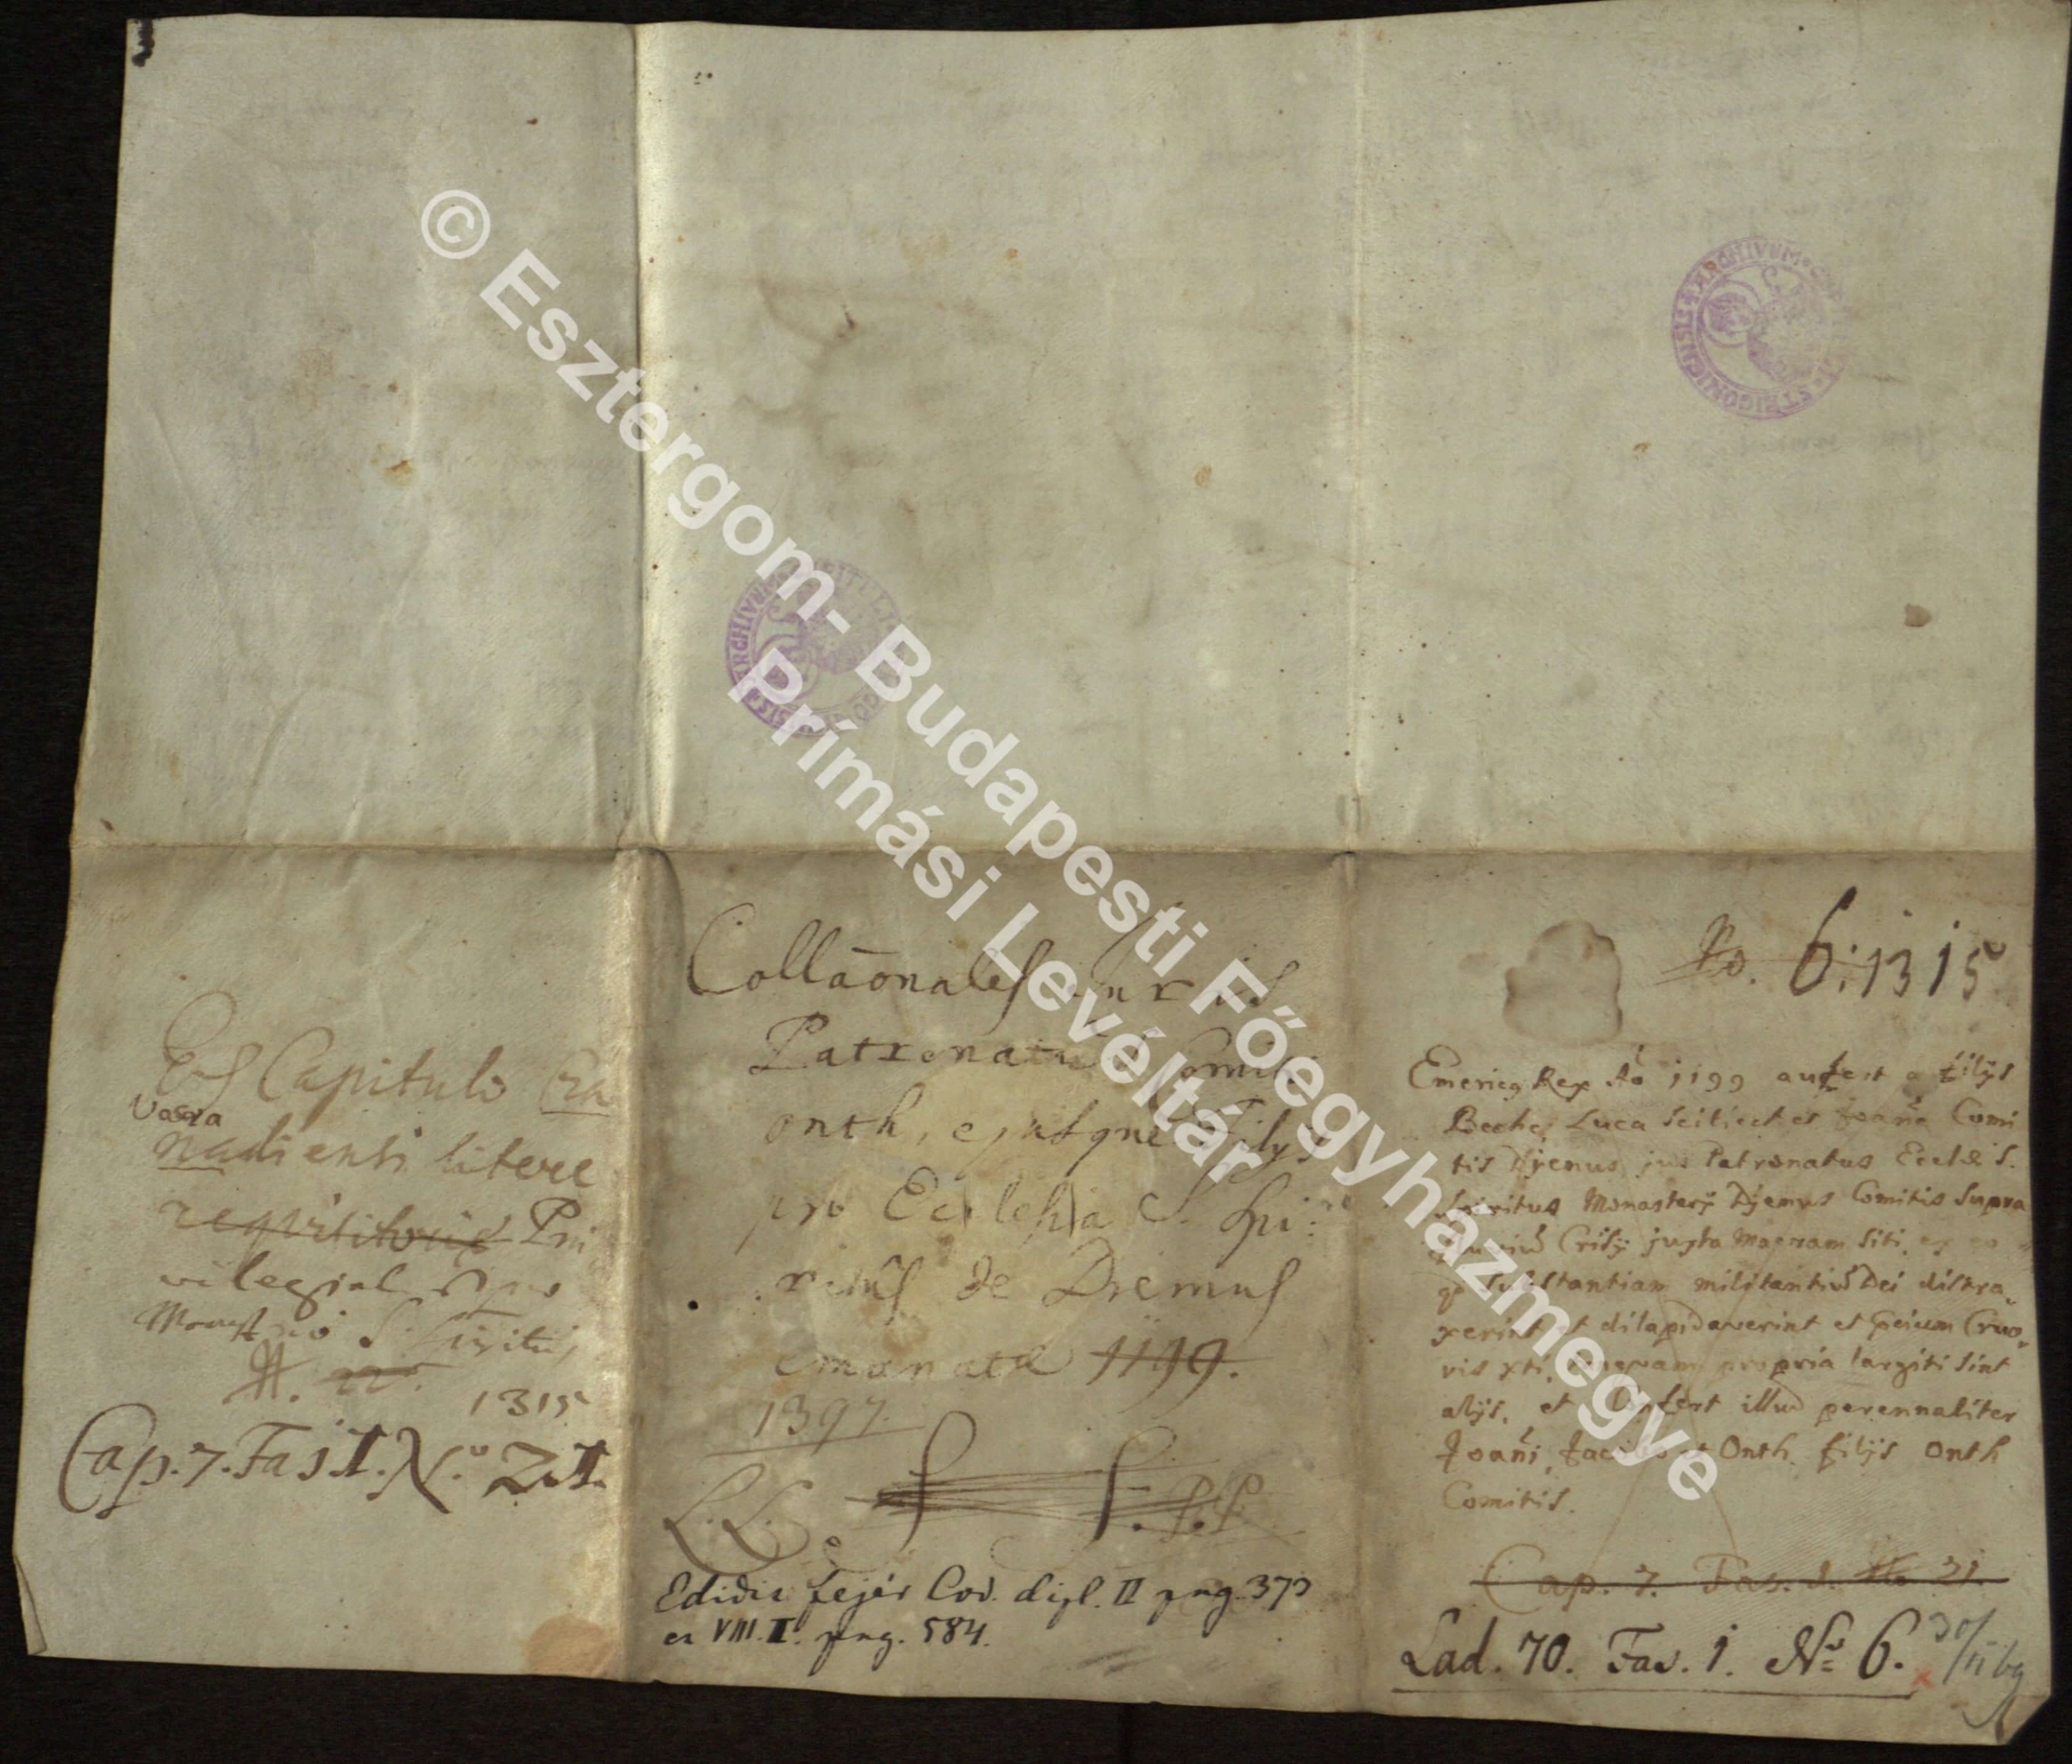 © Esztergom- Budapesti Főegyházmegye
Prímási Levéltár
Capitulo
Vacra
nadiensi litere
requisitorie Pri
vilegial
1315
Cap. 7. Fas I. N.o
Collãonales Juris
Patronatus Comiti
onth, ejusque Filys
pro Ecclesia S. Spi:
ritus de Dienus
emanatae 1199.
1397.
L.L.
Edidit Fejér Cod. dipl. II pag. 373
et VIII. I. pag. 584.
No. 6: 1315
Emericus Rex Aõ 1199 aufert a filÿs
Beche, Luca scilicet et Joañe Comi
tis Djenus jus Patronatus Eccl S.
Spiritus Monasterÿ Djenus Comitis Supra
Crisÿ juxta Maeram siti, ex eo
substantiam militantiũ Dei distra
xerint et dilapidaverint et precium Cruo
ris xti, propria largiti sint
alÿs, et Confert illud perennaliter
Joañi, Jacobo et Onth filÿs Onth
Comitis.
Cap. 7. Fas. 1. No 21.
Lad. 70. Fas. 1. No 6.